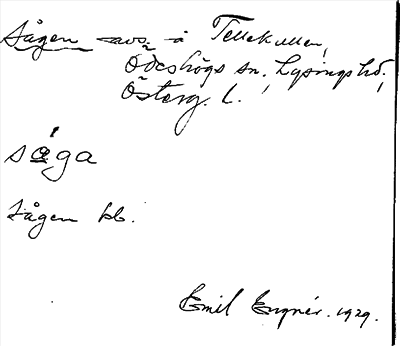 Sågen avs. å Tellekullen,
Ödeshögs sn. Lysings hd.,
Österg. l.
såga
Sågen bb.
Emil Engnér. 1929.